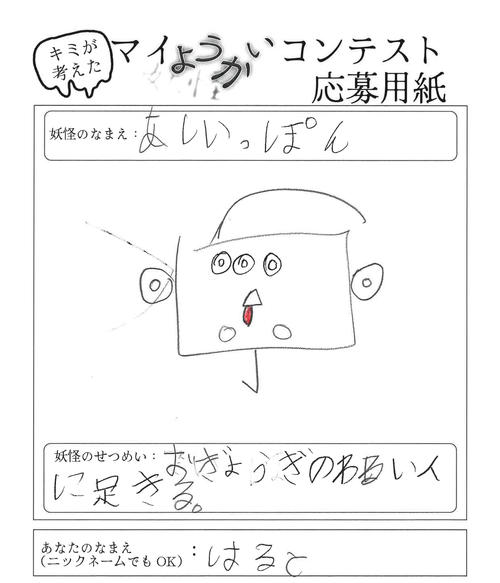 キミが
考えた
マイようかいコンテスト
応募用紙
妖怪のなまえ：あしいっぽん
妖怪のせつめい：おぎょうぎのわるい人
に足きる。
あなたのなまえ
（ニックネームでもOK）：はると